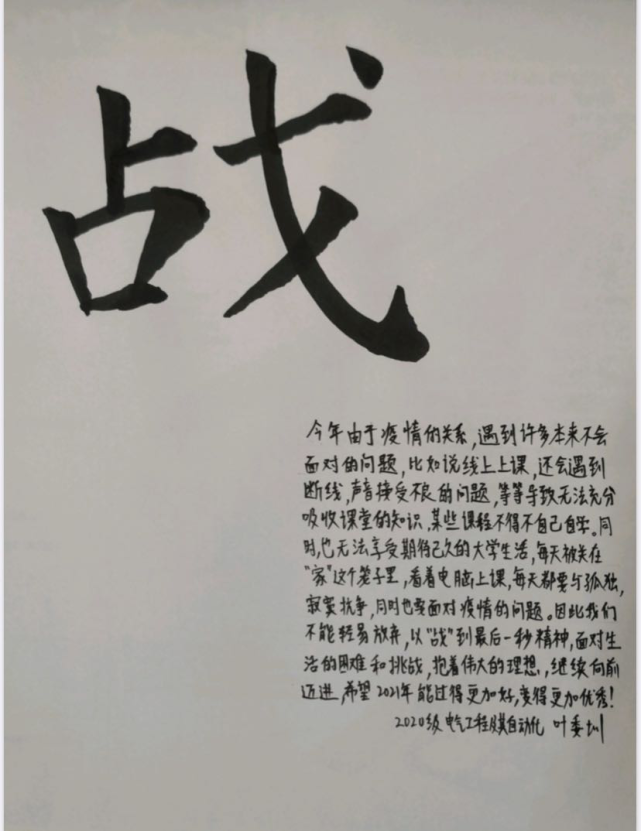 战
今年由于疫情的关系,遇到许多本来不会
面对的问题,比如说线上上课,还会遇到
断线,声音接受不良的问题,等等导致无法充分
吸收课堂的知识,某些课程不得不自己自学。同
时,也无法享受期待已久的大学生活,每天被关在
“家”这个笼子里,看着电脑上课,每天都要与孤独,
寂寞抗争,同时也要面对疫情的问题。因此我们
不能轻易放弃,以“战”到最后一秒精神,面对生
活的困难和挑战,抱着伟大的理想,,继续向前
迈进,希望2021年能过得更加好,变得更加优秀!
2020级 电气工程及其自动化 叶委圳